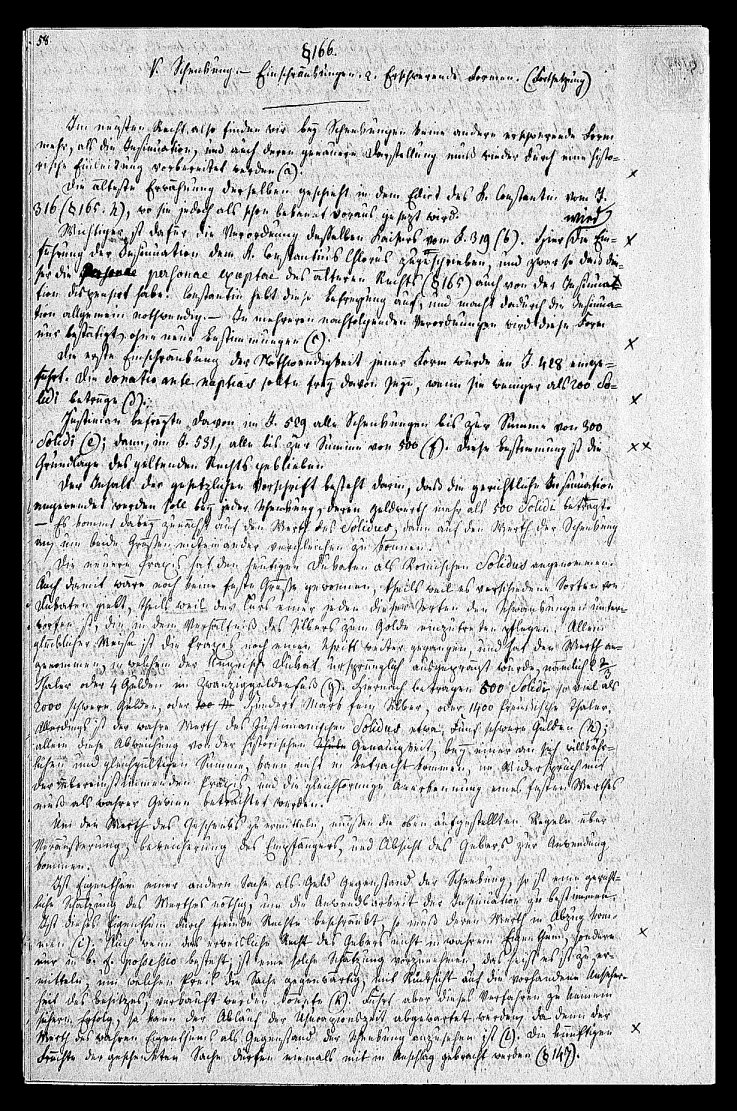 58
§166.
V. Schenkung. – Einschränkungen. 2. Erschwerende Formen. (Fortsetzung)
Im neusten Recht also finden wir bey Schenkungen keine andere erschwerende Form
mehr, als die Insinuation, und auch deren genauere Darstellung muß wieder durch eine histo-
rische Einleitung vorbereitet werden (a).
Die älteste Erwähnung derselben geschieht in dem Edict des K. Constantin vom J.
316 (§165. h), wo sie jedoch als schon bekannt voraus gesetzt wird.
Wichtiger ist dafür die Verordnung desselben Kaisers vom J. 319 (b). Hier wird die Ein-
führung der Insinuation dem K. Constantius Chlorus zugeschrieben, und zwar so daß die-
ser die personae exceptae des älteren Rechts (§165) auch von der Insinua-
tion dispensirt habe. Constantin hebt diese Befreyung auf, und macht dadurch die Insinua-
tion allgemein nothwendig. – In mehreren nachfolgenden Verordnungen wird diese Form
nur bestätigt, ohne neue Bestimmungen (c).
Die erste Einschränkung der Nothwendigkeit jener Form wurde im J. 428 einge-
führt. Die donatio ante nuptias sollte frey davon seyn, wenn sie weniger als 200 So-
lidi betrüge (d).
Justinian befreyte davon im J. 529 alle Schenkungen bis zur Summe von 300
Solidi (e); dann, im J. 531, alle bis zur Summe von 500 (f). Diese Bestimmung ist die
Grundlage des geltenden Rechts geblieben.
Der Inhalt der gesetzlichen Vorschrift besteht darin, daß die gerichtliche Insinuation
angewendet werden soll bey jeder Schenkung, deren Geldwerth mehr als 500 Solidi beträgt.
– Es kommt dabey zunächst auf den Werth des Solidus, dann auf den Werth der Schenkung
an, um beide Größen miteinander vergleichen zu können.
Die neuere Praxis hat den heutigen Dukaten als Römischen Solidus angenommen.
Auch damit wäre noch keine feste Größe gewonnen, theils weil es verschiedene Sorten von
Dukaten giebt, theils weil der Curs einer jeden dieser Sorten den Schwankungen unter-
worfen ist, die in dem Verhältniß des Silbers zum Golde einzutreten pflegen. Allein
glücklicher Weise ist die Praxis noch einen Schritt weiter gegangen, und hat den Werth an-
genommen, in welchem der Dukat ursprünglich ausgeprägt wurde, nämlich 2 2/3
Thaler oder 4 Gulden im Zwanzigguldenfuß (g). Hiernach betragen 500 Solidi so viel als
2000 schwere Gulden, oder Hundert Mark fein Silber, oder 1400 Preußische Thaler.
Allerdings ist der wahre Werth des Justinianischen Solidus etwa fünf schwere Gulden (h);
allein diese Abweichung von der historischen Genauigkeit, bey einer an sich willkühr-
lichen und gleichgültigen Summe, kann nicht in Betracht kommen, im Widerspruch mit
der übereinstimmenden Praxis, und die gleichförmige Anerkennung eines festen Werthes
muß als wahrer Gewinn betrachtet werden.
Um den Werth des Geschenks zu ermitteln, müssen die oben aufgestellten Regeln über
Veräußerung, Bereicherung des Empfängers, und Absicht des Gebers zur Anwendung
kommen.
Ist Eigenthum einer andern Sache als Geld Gegenstand der Schenkung, so ist eine gericht-
liche Schätzung des Werthes nöthig, um die Anwendbarkeit der Insinuation zu bestimmen.
Ist dieses Eigenthum durch fremde Rechte beschränkt, so muß deren Werth in Abzug kom-
men (i). Auch wenn das erweisliche Recht des Gebers nicht in wahrem Eigenthum, sondern
nur in b. f. possessio besteht, ist eine solche Schätzung vorzunehmen, das heißt es ist zu er-
mitteln, um welchen Preis die Sache gegenwärtig, mit Rücksicht auf die vorhandene Unsicher-
heit des Besitzes, verkauft werden könnte (k). Führt aber dieses Verfahren zu keinem
sichern Erfolg, so kann der Ablauf der Usucapionszeit abgewartet werden, da dann der
Werth des wahren Eigenthums als Gegenstand der Schenkung anzusehen ist (l). Die künftigen
Früchte der geschenkten Sache dürfen niemals mit in Anschlag gebracht werden (§ 147).